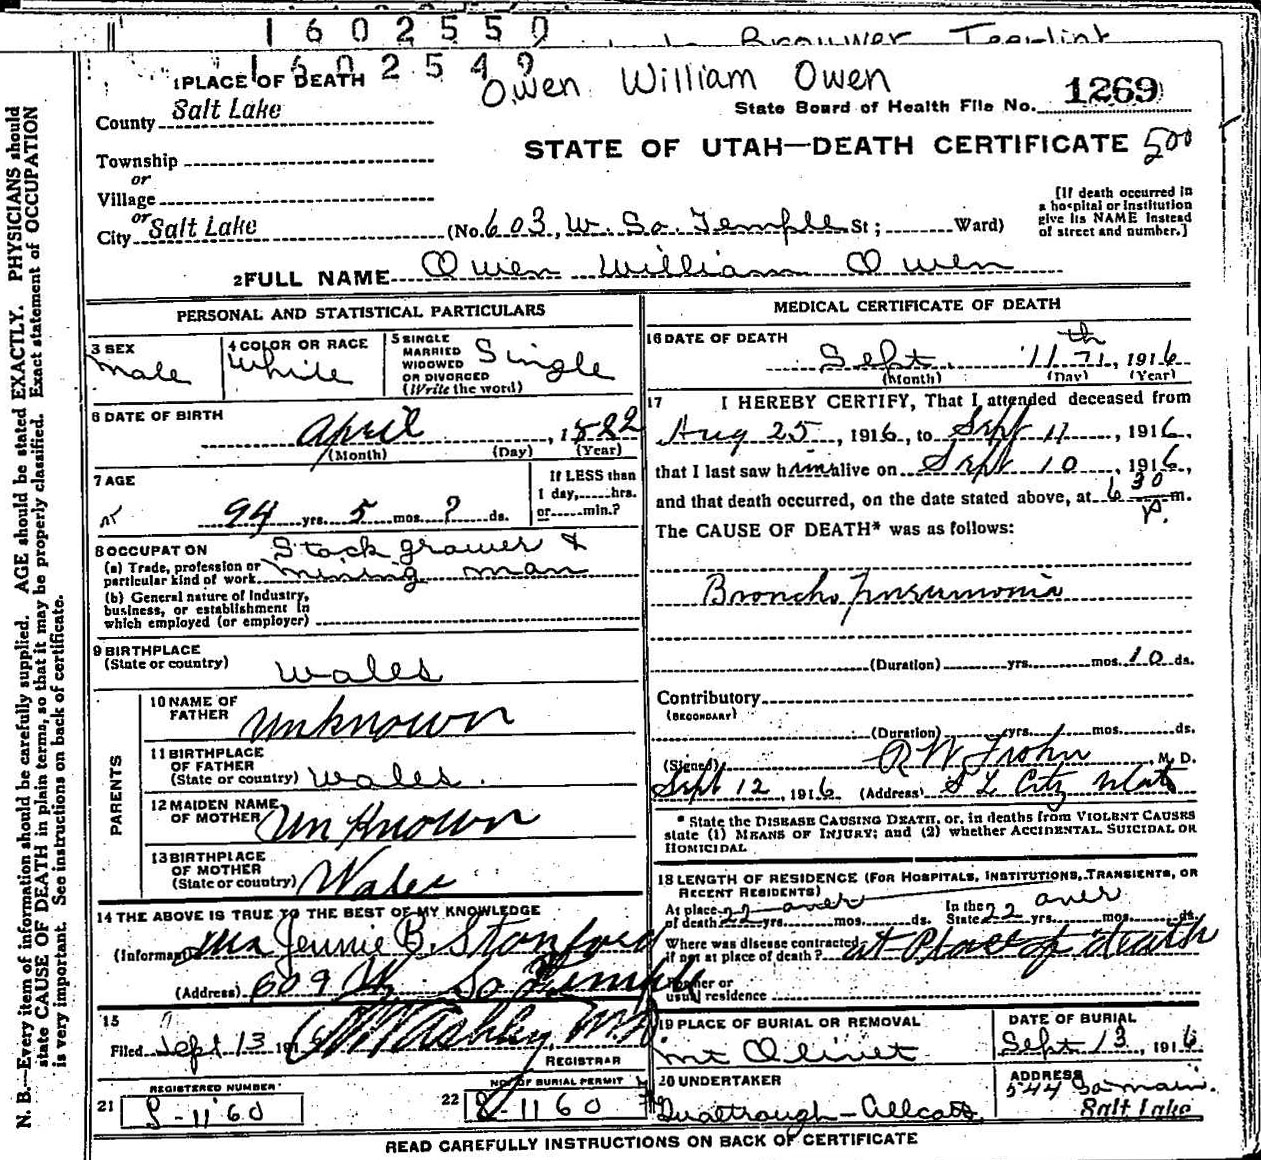 1602550
Brouwer Teerlint
1602549
Owen William Owen
1 PLACE OF DEATH
State Board of Health File No. 1269
County Salt Lake
STATE OF UTAH—DEATH CERTIFICATE 500
Township
or
Village
or
City Salt Lake (No. 603, W. So. Temple St; Ward)
[If death occurred in
a hospital or institution
give its NAME instead
of street and number.]
2 FULL NAME Owen William Owen
PERSONAL AND STATISTICAL PARTICULARS
3 SEX
Male
4 COLOR OR RACE
White
5 SINGLE
MARRIED
WIDOWED
OR DIVORCED
(Write the word)
Single
6 DATE OF BIRTH
April, 1822
(Month) (Day) (Year)
7 AGE
94 yrs. 5 mos. ? ds.
If LESS than
1 day, hrs.
or min.?
8 OCCUPATION
(a) Trade, profession or
particular kind of work
Stock grower &
mining man
(b) General nature of Industry,
business, or establishment in
which employed (or employer)
9 BIRTHPLACE
(State or country) Wales
PARENTS
10 NAME OF
FATHER Unknown
11 BIRTHPLACE
OF FATHER
(State or country) Wales.
12 MAIDEN NAME
OF MOTHER Unknown
13 BIRTHPLACE
OF MOTHER
(State or country) Wales
14 THE ABOVE IS TRUE TO THE BEST OF MY KNOWLEDGE
(Informant) Mrs Jennie B. Stanford
(Address) 609 W. So Temple
15
Filed Sept 13 1916 Ashley, M.D.
REGISTRAR
REGISTERED NUMBER
21 S-1160
NO. OF BURIAL PERMIT
22 S-1160
MEDICAL CERTIFICATE OF DEATH
16 DATE OF DEATH
Sept. 11th, 1916
(Month) (Day) (Year)
17 I HEREBY CERTIFY, That I attended deceased from
Aug 25, 1916, to Sept 11, 1916,
that I last saw him alive on Sept 10, 1916,
and that death occurred, on the date stated above, at 6 30 P. m.
The CAUSE OF DEATH* was as follows:
Broncho pneumonia
(Duration) yrs. mos. 10 ds.
Contributory
(SECONDARY)
(Duration) yrs. mos. ds.
(Signed) M. D.
Sept 12, 1916 (Address) S L City Utah
* State the DISEASE CAUSING DEATH, or, in deaths from VIOLENT CAUSES
state (1) MEANS OF INJURY; and (2) whether ACCIDENTAL, SUICIDAL OR
HOMICIDAL
18 LENGTH OF RESIDENCE (FOR HOSPITALS, INSTITUTIONS, TRANSIENTS, OR
RECENT RESIDENTS)
At place
of death 22 yrs. over mos. ds. In the
State 22 yrs. over mos. ds.
Where was disease contracted
if not at place of death? at Place of death
Former or
usual residence
19 PLACE OF BURIAL OR REMOVAL
Mt Olivet
DATE OF BURIAL
Sept 13, 1916
20 UNDERTAKER
ADDRESS
544 So main.
Salt Lake
READ CAREFULLY INSTRUCTIONS ON BACK OF CERTIFICATE
N. B.—Every item of information should be carefully supplied. AGE should be stated EXACTLY. PHYSICIANS should
state CAUSE OF DEATH in plain terms, so that it may be properly classified. Exact statement of OCCUPATION
is very important. See instructions on back of certificate.